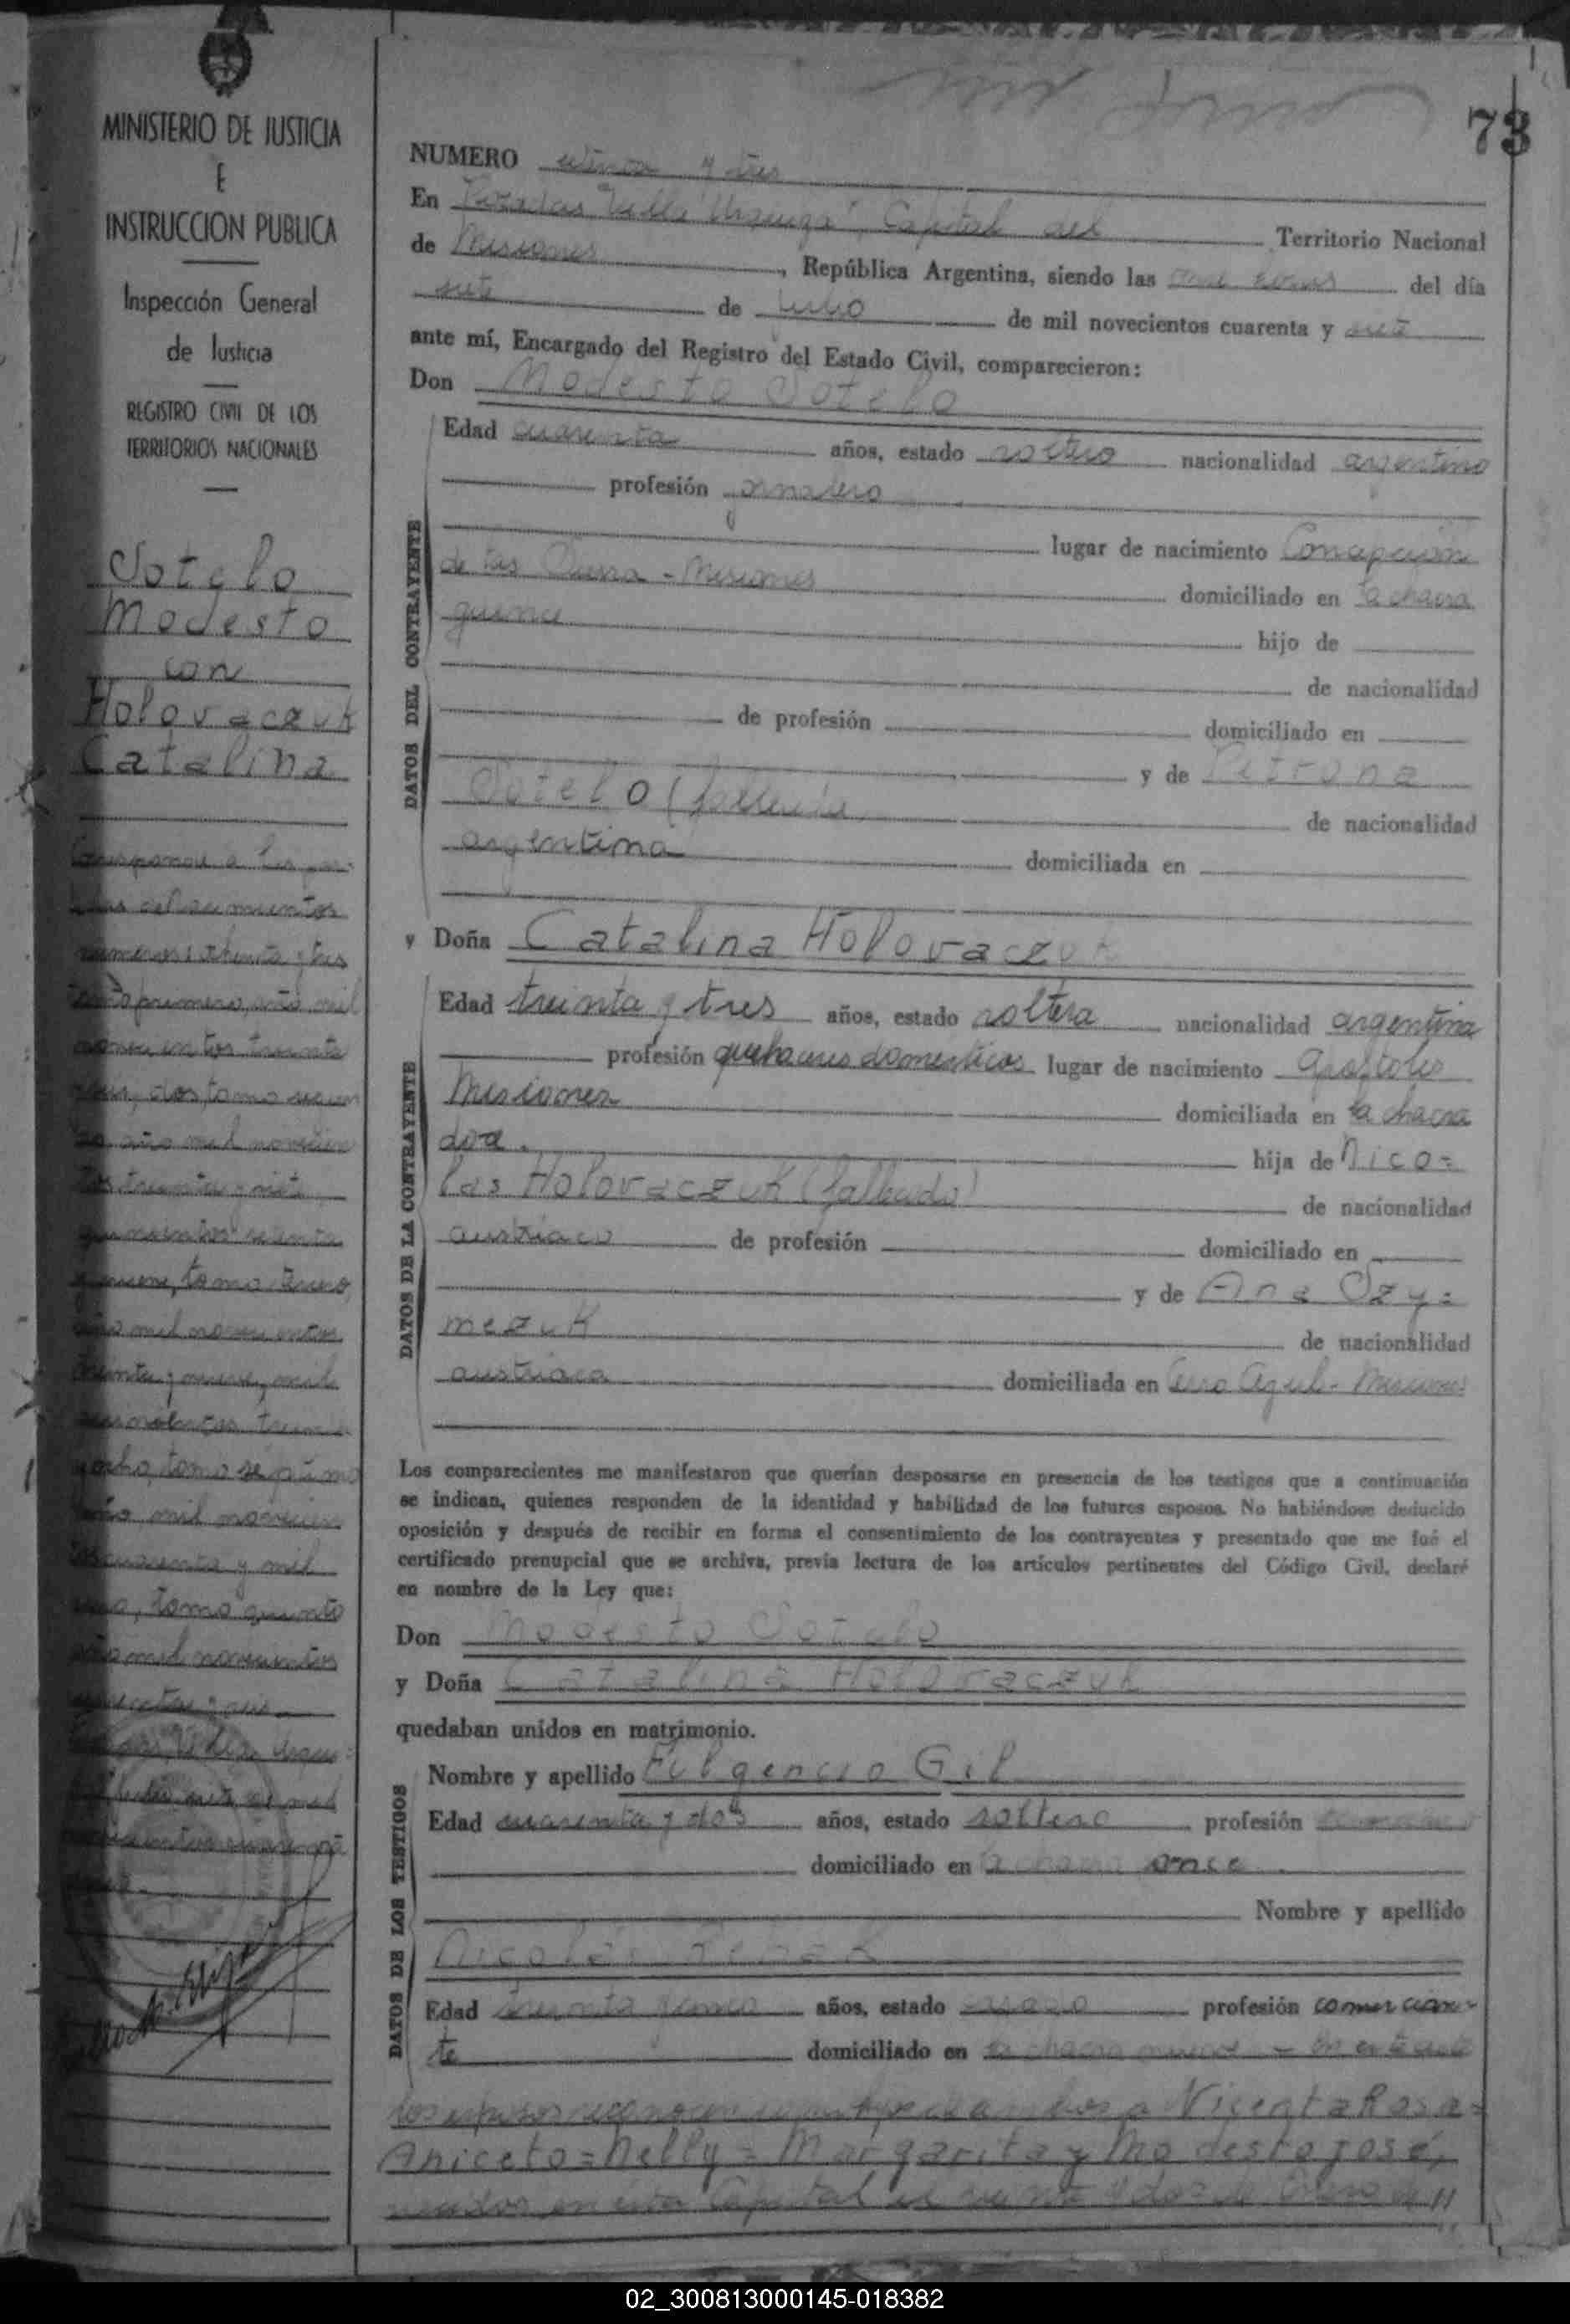 73
MINISTERIO DE JUSTICIA
E
INSTRUCCION PUBLICA
Inspección General
de Justicia
REGISTRO CIVIL DE LOS
TERRITORIOS NACIONALES
Sotelo
Modesto
con
Holovaczuk
Catalina
Corresponde a las par-
tidas de nacimientos
numeros: ochenta y tres
tomo primero, año mil
novecientos treinta
dos, tomo
año mil novecien
tos treinta y siete,
quinientos
y nueve, tomo tercero,
año mil novecientos
treinta y nueve, mil
y ocho, tomo séptimo
año mil novecien
tos cuarenta y mil
tomo quinto
año mil novecientos
cuarenta y seis
Villa Urqui=
siete de mil
novecientos cuarenta
NUMERO setenta y tres
En Posadas "Villa Urquiza", Capital del Territorio Nacional
de Misiones, República Argentina, siendo las once horas del día
siete de Julio de mil novecientos cuarenta y siete
ante mí, Encargado del Registro del Estado Civil, comparecieron:
Don Modesto Sotelo
DATOS DEL CONTRAYENTE
Edad cuarenta años, estado soltero nacionalidad argentino
profesión jornalero
lugar de nacimiento Concepción
de las Sierra - Misiones domiciliado en la chacra
quince hijo de
de nacionalidad
de profesión domiciliado en
y de Petrona
Sotelo (fallecida de nacionalidad
argentina domiciliada en
y Doña Catalina Holovaczuk
DATOS DE LA CONTRAYENTE
Edad treinta y tres años, estado soltera nacionalidad argentina
profesión quehaceres domesticos lugar de nacimiento Apostoles
Misiones domiciliada en la chacra
dos. hija de Nico=
las Holovaczuk (fallecido) de nacionalidad
austriaco de profesión domiciliado en
y de Ana Ozy=
mezuk de nacionalidad
austriaca domiciliada en Cerro Azul - Misiones
Los comparecientes me manifestaron que querían desposarse en presencia de los testigos que a continuación
se indican, quienes responden de la identidad y habilidad de los futuros esposos. No habiéndose deducido
oposición y después de recibir en forma el consentimiento de los contrayentes y presentado que me fué el
certificado prenupcial que se archiva, previa lectura de los artículos pertinentes del Código Civil, declaré
en nombre de la Ley que:
Don Modesto Sotelo
y Doña Catalina Holovaczuk
quedaban unidos en matrimonio.
DATOS DE LOS TESTIGOS
Nombre y apellido Fulgencio Gil
Edad cuarenta y dos años, estado soltero profesión
domiciliado en la chacra once
Nombre y apellido
Nicolás
Edad treinta y cinco años, estado casado profesión comercian-
te domiciliado en la chacra nueve - En este acto
los esposos reconocen como hijos de ambos a Vicenta Rosa=
Aniceto=Nelly=Margarita y Modesto José,
nacidos en esta Capital el veinte y dos de Enero de //
02_300813000145-018382